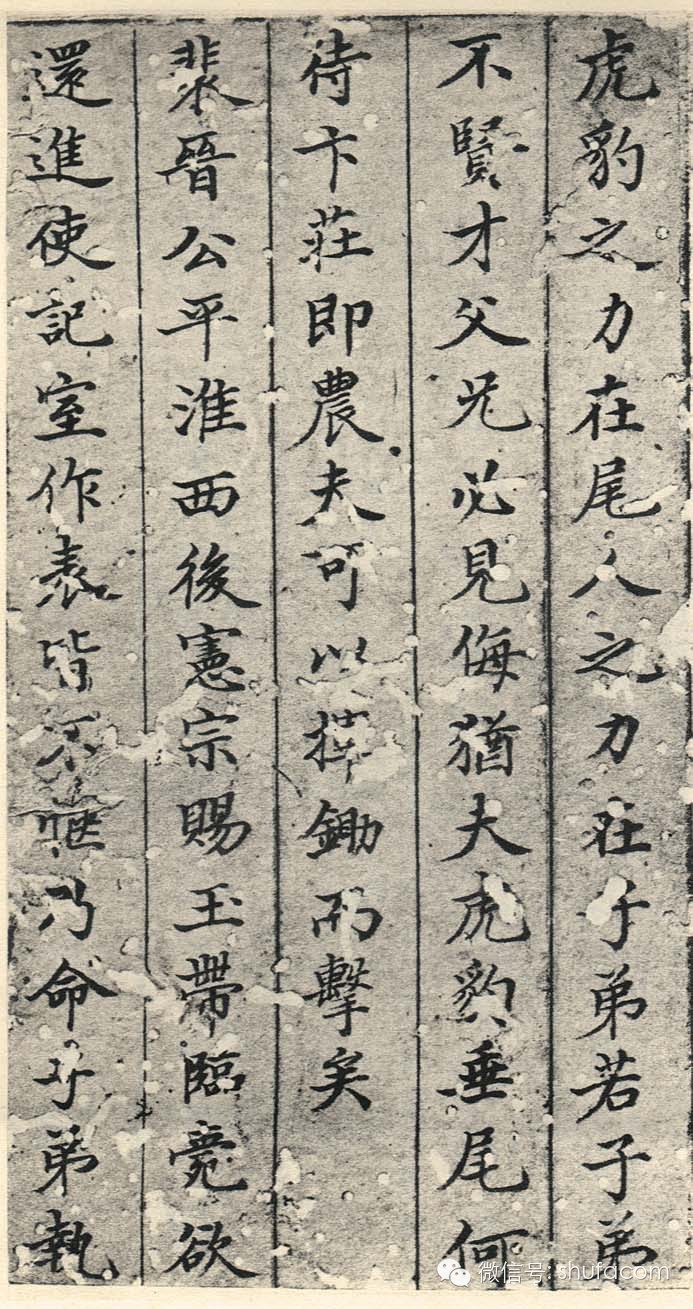 虎豹之力在尾人之力在子弟若子弟
不賢才父兄必見侮猶夫虎豹垂尾何
待卞莊即農夫可以揮鋤而擊矣
裴晉公平淮西後憲宗賜玉帶臨薨欲
還進使記室作表皆不愜乃命子弟執
微信号:shufdcom